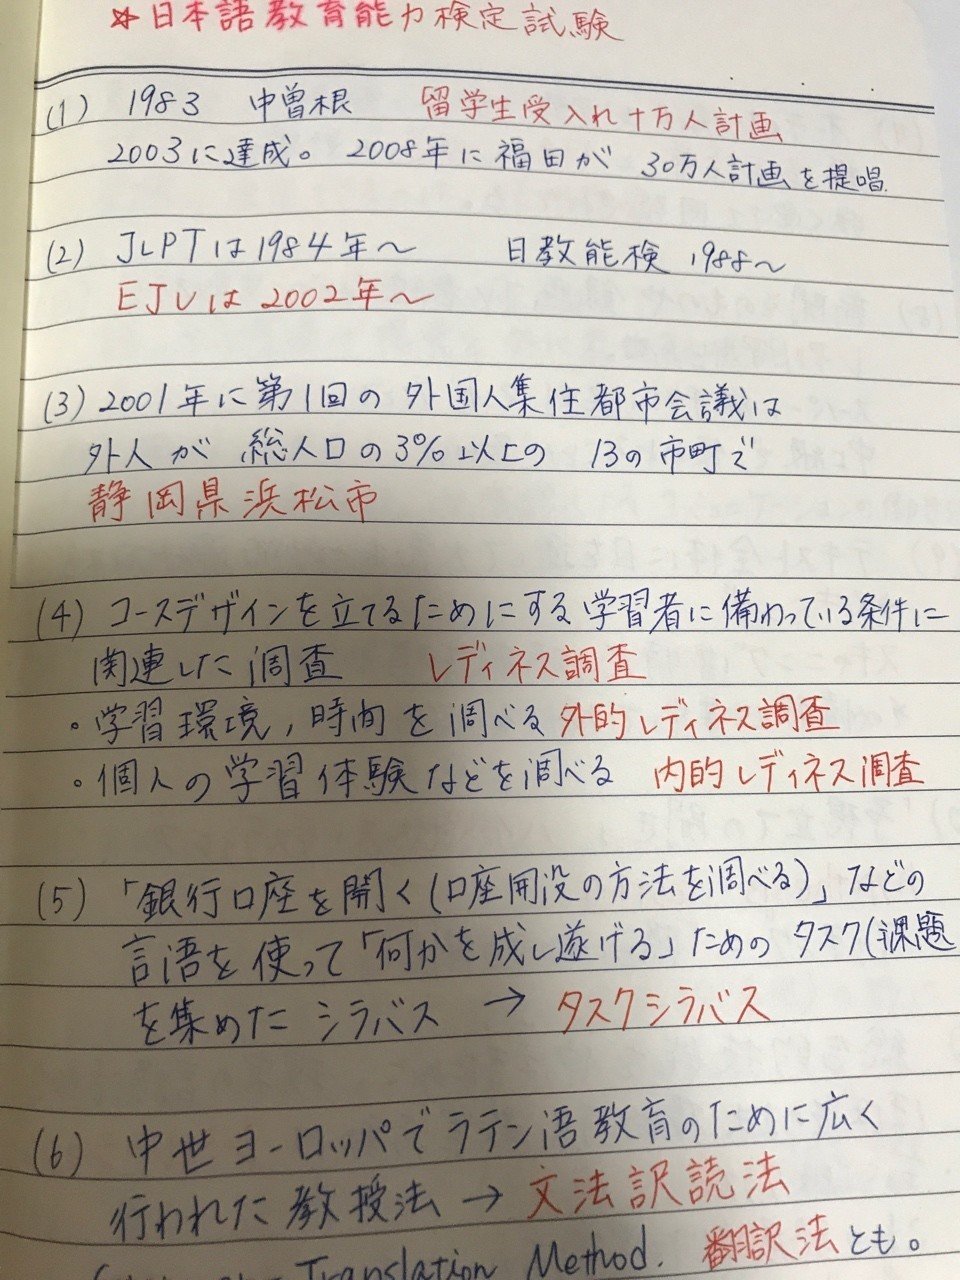 ☆日本語教育能力検定試験
(1) 1983 中曽根 留学生受入れ十万人計画
2003に達成。2008年に福田が 30万人計画を提唱
(2) JLPTは1984年〜 日教能検 1988〜
EJUは2002年〜
(3) 2001年に第1回の外国人集住都市会議は
外人が 総人口の3%以上の 13の市町で
静岡県浜松市
(4) コースデザインを立てるためにする学習者に備わっている条件に
関連した調査 レディネス調査
・学習環境,時間を調べる外的レディネス調査
・個人の学習体験などを調べる 内的レディネス調査
(5) 「銀行口座を開く(口座開設の方法を調べる)」などの
言語を使って「何かを成し遂げる」ためのタスク(課題
を集めたシラバス → タスクシラバス
(6) 中世ヨーロッパでラテン語教育のために広く
行われた教授法 → 文法訳読法
Translation Method. 翻訳法とも。